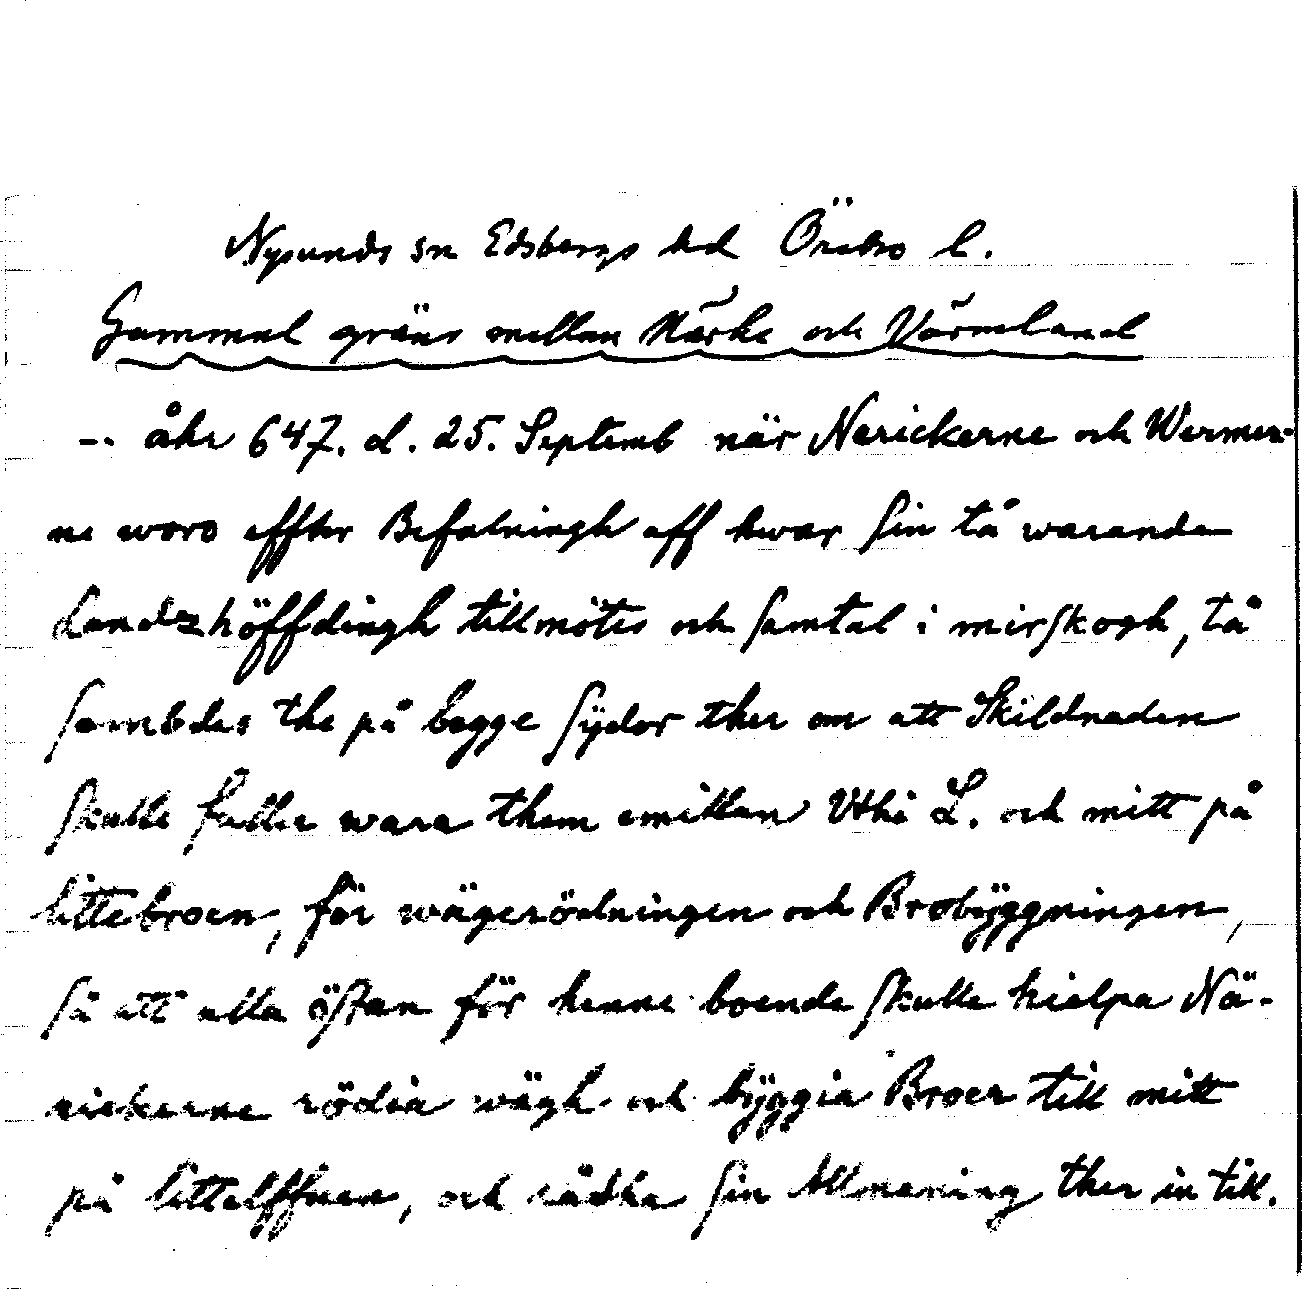 Nysunds sn Edsbergs hd Örebro l.
Gammal gräns mellan Närke och Värmeland
-- åhr 647. d. 25. Septemb när Nerickerne och Wermer-
ne woro effter Befalningh aff hwar sin tå warande
Landzhöffdingh tillmötes och samtal i mirskogh, tå
sambdes the på begge sÿdor ther om att Skildnaden
skulle falla wara them emillan Vthi L. och mitt på
littebroen, för wägerödningen och Brobÿggningen,
så att alla östan för henne boende skulle hielpa Nä-
rickerne rödia wägh och bÿggia Broer till mitt
på littelffuen, och rådha sin Allmening ther in till.